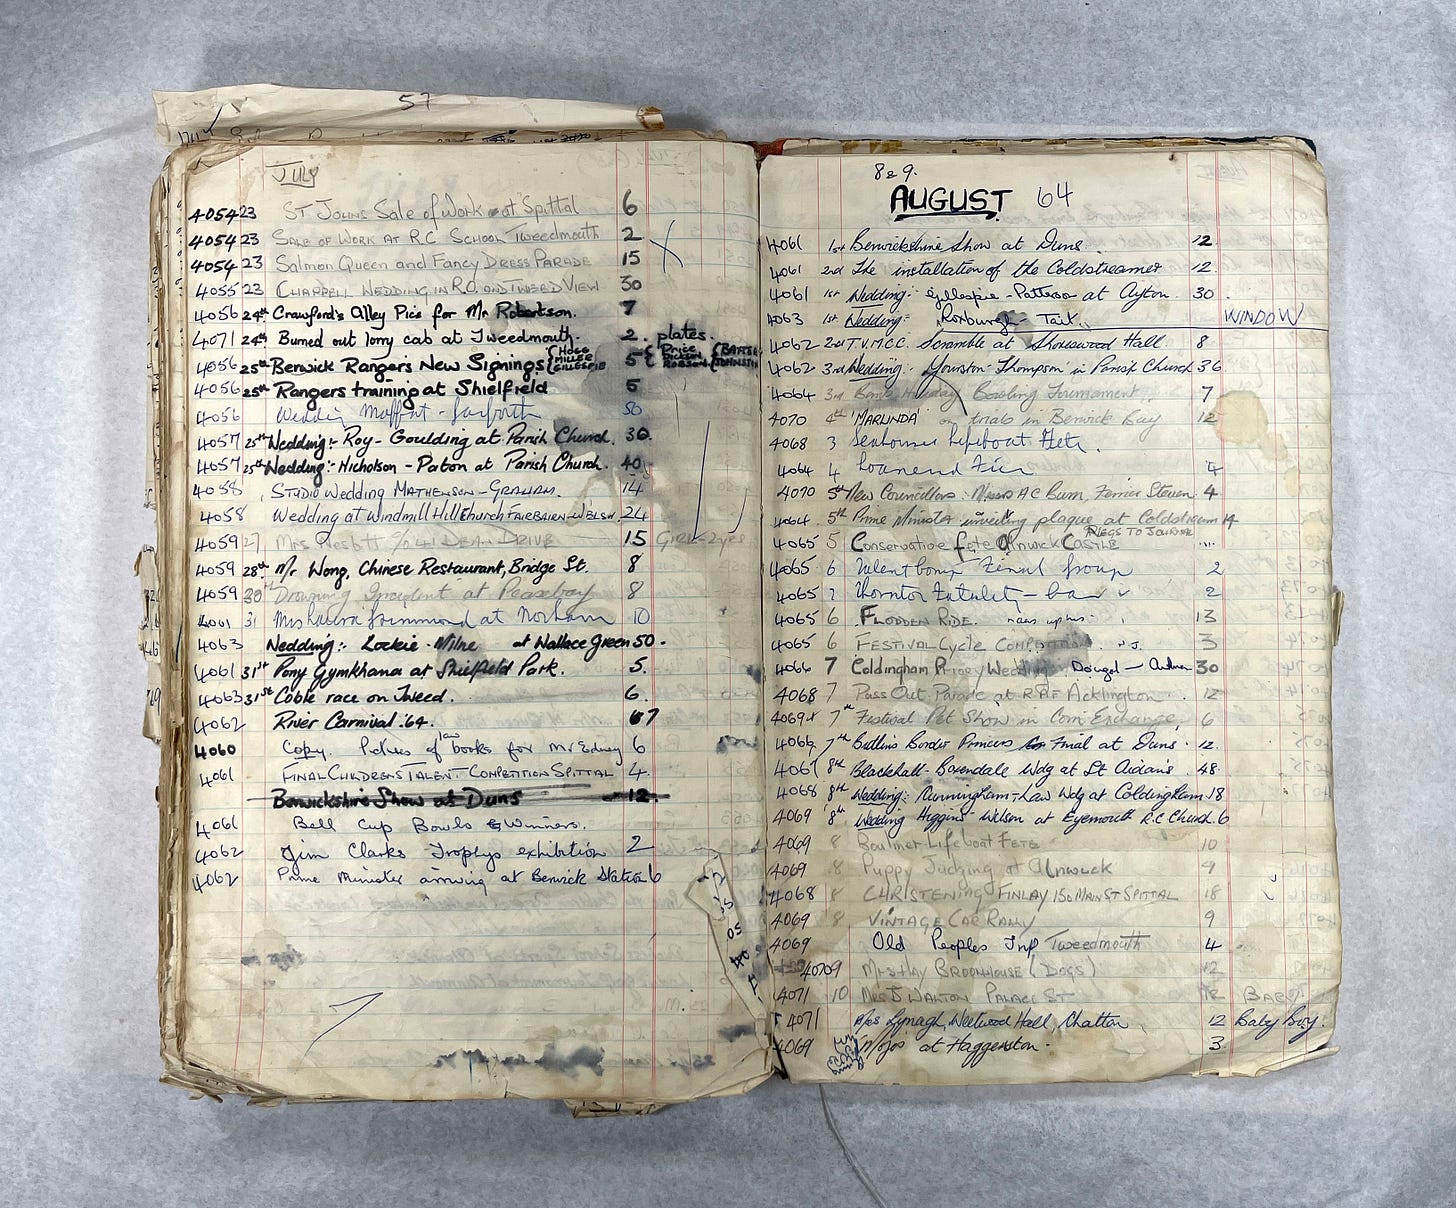 57
July
4054 23 St Johns Sale of Work at Spittal 6
4054 23 Sale of Work at R.C. School Tweedmouth 2
4054 23 Salmon Queen and Fancy Dress Parade 15
4055 23 Chappell Wedding in R.O. and Tweed View 30
4056 24th Crawford's Alley Pics for Mr Robertson. 7
4071 24th Burned out lorry cab at Tweedmouth. 2. plates.
4056 25th Berwick Rangers New Signings { Hogg Miller Gillespie 5 { Price Robson {
4056 25th Rangers training at Shielfield 5
4056 Wedding Moffat - 50
4057 25th Wedding:- Roy - Goulding at Parish Church. 30.
4057 25th Wedding:- Nicholson - Paton at Parish Church. 40
4058 Studio Wedding Mathenson - Graham. 14
4058 Wedding at Windmill Hill Church Fairbairn - Welsh. 24
4059 27 Mrs Nesbitt 41 Dean Drive 15 Girl - 2 yrs
4059 28th Mr Wong, Chinese Restaurant, Bridge St. 8
4059 30th Drowning Incident at Peasebay 8
4061 31 Mrs at Norham 10
4063 Wedding:- Lockie - Milne at Wallace Green 50.
4061 31st Pony Gymkhana at Shielfield Park. 5.
4063 31st Coble race on Tweed. 6.
4062 River Carnival '64. 7
4060 Copy. Pictures of law books for Mr Edney 6
4061 Final Childrens Talent Competition Spittal 4.
Berwickshire Show at Duns 12.
4061 Bell Cup Bowls Winners.
4062 Jim Clarks Trophys exhibition 2
4062 Prime Minister arriving at Berwick Station 6
8 & 9.
AUGUST 64
4061 1st Berwickshire Show at Duns. 12
4061 2nd The installation of the Coldstreamer 12.
4061 1st Wedding:- Gillespie - Patterson at Ayton. 30.
4063 1st Wedding:- Roxburgh - Tait. WINDOW
4062 2nd T.V.M.C.C. Scramble at Shoreswood Hall 8
4062 3rd Wedding:- Yourston - Thompson in Parish Church 36
4064 3rd Bank Holiday Bowling Tournament 7
4070 4th 'MARUNDA' on trials in Berwick Bay 12
4068 3 Seahouses Lifeboat Fete.
4064 4 Townend Fair 4
4070 5th New Councillors. Messrs A C Burn, Ferrier Steven 4
4064. 5th Prime Minister unveiling plaque at Coldstream 14
4065 5 Conservative fete Alnwick Castle Negs to Journal
4065 6 Talent Comp. Final group 2
4065 7 Thornton Fatality - 2
4065 6 Flodden Ride. 13
4065 6 Festival Cycle Competition 3
4066 7 Coldingham Priory Wedding Dougal - 30
4068 7 Pass Out Parade at RAF Acklington. 12
4069 7th Festival Pet Show in Corn Exchange. 6
4066 7th Butlins Border Princess Final at Duns. 12.
4067 8th Blackhall - Boxendale Wdg at St Aidan's 48.
4068 8th Wedding:- Cunningham - Law Wdg at Coldingham 18
4069 8th Wedding Higgins - Wilson at Eyemouth R.C Church. 6
4069 8 Boulmer Lifeboat Fete 10
4069 8 Puppy Judging at Alnwick 9
4068 8 Christening Finlay 150 Main St Spittal 18
4069 8 Vintage Car Rally 9
4069 Old Peoples Tweedmouth 4
4069 Mrs Hay Broomhouse (Dogs) 12
4071 10 Mrs J Walton Palace St 12 Baby
4071 Mrs Lynagh, Westwood Hall, Chatton. 12 Baby Boy.
4069 Mojos at Haggerston. 3